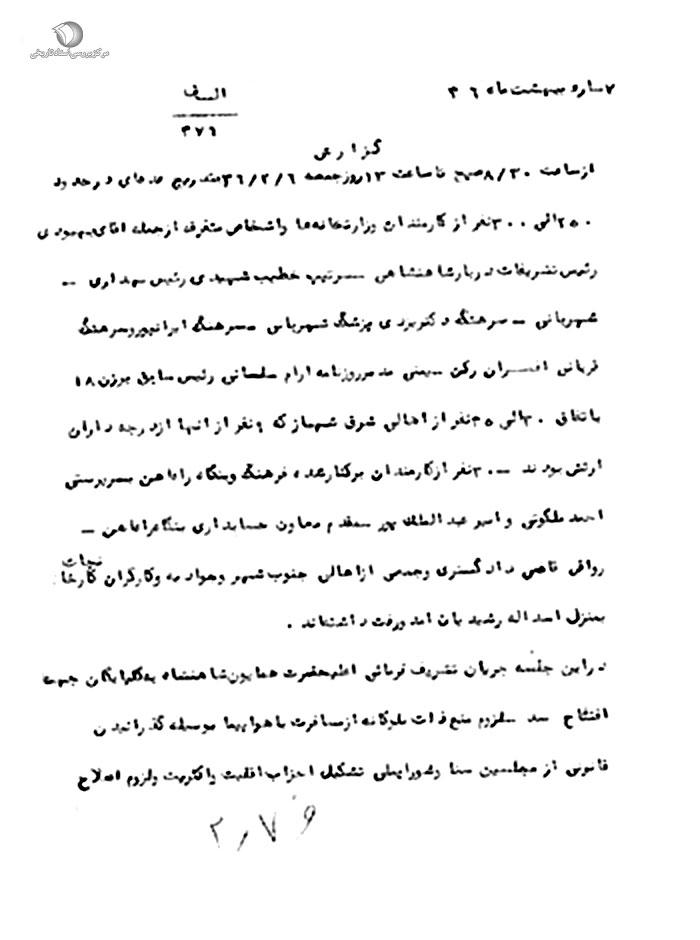 مرکز بررسی اسناد تاریخی
۷ ماه اردیبهشت ماه ۳۶
الف
۳۷۶
گزارش
از ساعت ۸/۳۰ صبح تا ساعت ۱۳ روز جمعه ۳۶/۲/۶ بتدریج عده‌ای در حدود
۲۵۰ الی ۳۰۰ نفر از کارمندان وزارتخانه‌ها و اشخاص متفرق از جمله آقای بهبودی
رئیس تشریفات دربار شاهنشاهی – سرتیپ خطیب شهیدی رئیس بهداری –
شهربانی – سرهنگ دکتر یزدی پزشک شهربانی – سرهنگ ایرانپور و سرهنگ
قربانی افسران رکن – یعنی مدیر روزنامه آرام سلمانی رئیس سابق برزن ۱۸
باتفاق ۳۰ الی ۳۵ نفر از اهالی شرق شهباز که ۹ نفر از آنها از درجه داران
ارتش بودند – ۳۰ نفر از کارمندان برکنار شده فرهنگ و بنگاه راه‌آهن بسرپرستی
احمد ملکوتی و امیر عبدالملک پور مقدم معاون حسابداری بنگاه راه‌آهن –
رواقی قاضی دادگستری و جمعی از اهالی جنوب شهر و جوادیه و کارگران کارخانجات
بمنزل اسداله رشیدیان آمد و رفت داشته‌اند .
در این جلسه جریان تشریف فرمائی اعلیحضرت همایون شاهنشاه به گلپایگان جهت
افتتاح سد – لزوم منع ذات ملوکانه از مسافرت با هواپیما بوسیله گذرانیدن
قانونی از مجلسین سنا و شورایملی تشکیل احزاب اقلیت و اکثریت و لزوم اصلاح